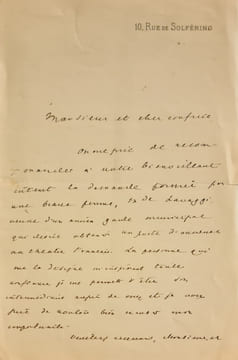 10, RUE DE SOLFÉRINO
Monsieur et cher confrère
On me prie de recom-
mander à votre bienveillant
intérêt la demande formée par
une brave femme, Me de
veuve d'un ancien garde municipal
qui désire obtenir un poste d'ouvreuse
au théâtre Français. La personne qui
me la désigne m'inspirant toute
confiance je me permets d'être son
intermédiaire auprès de vous et je vous
prie de vouloir bien
importunité.
Veuillez recevoir, Monsieur et